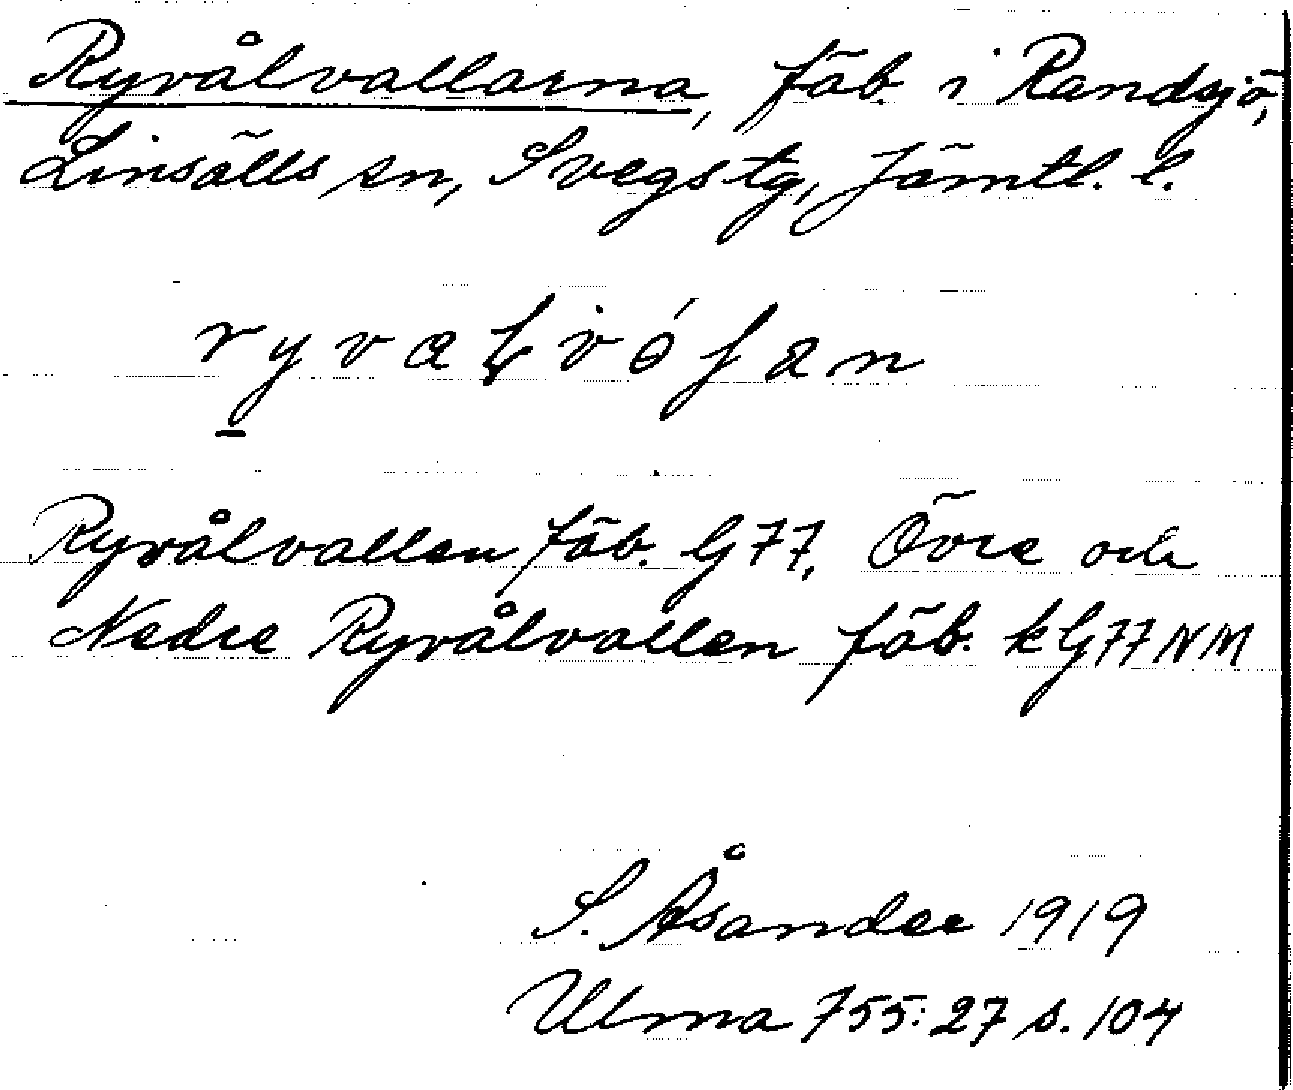 Ryvålvallarna, fäb. i Randsjö,
Linsälls sn, Svegs tg, Jämtl. l.
Ryvålvallen fäb. G77, Övre och
Nedre Ryvålvallen fäb. kG77NM
S. Åsander 1919
Ulma 755:27 s. 104